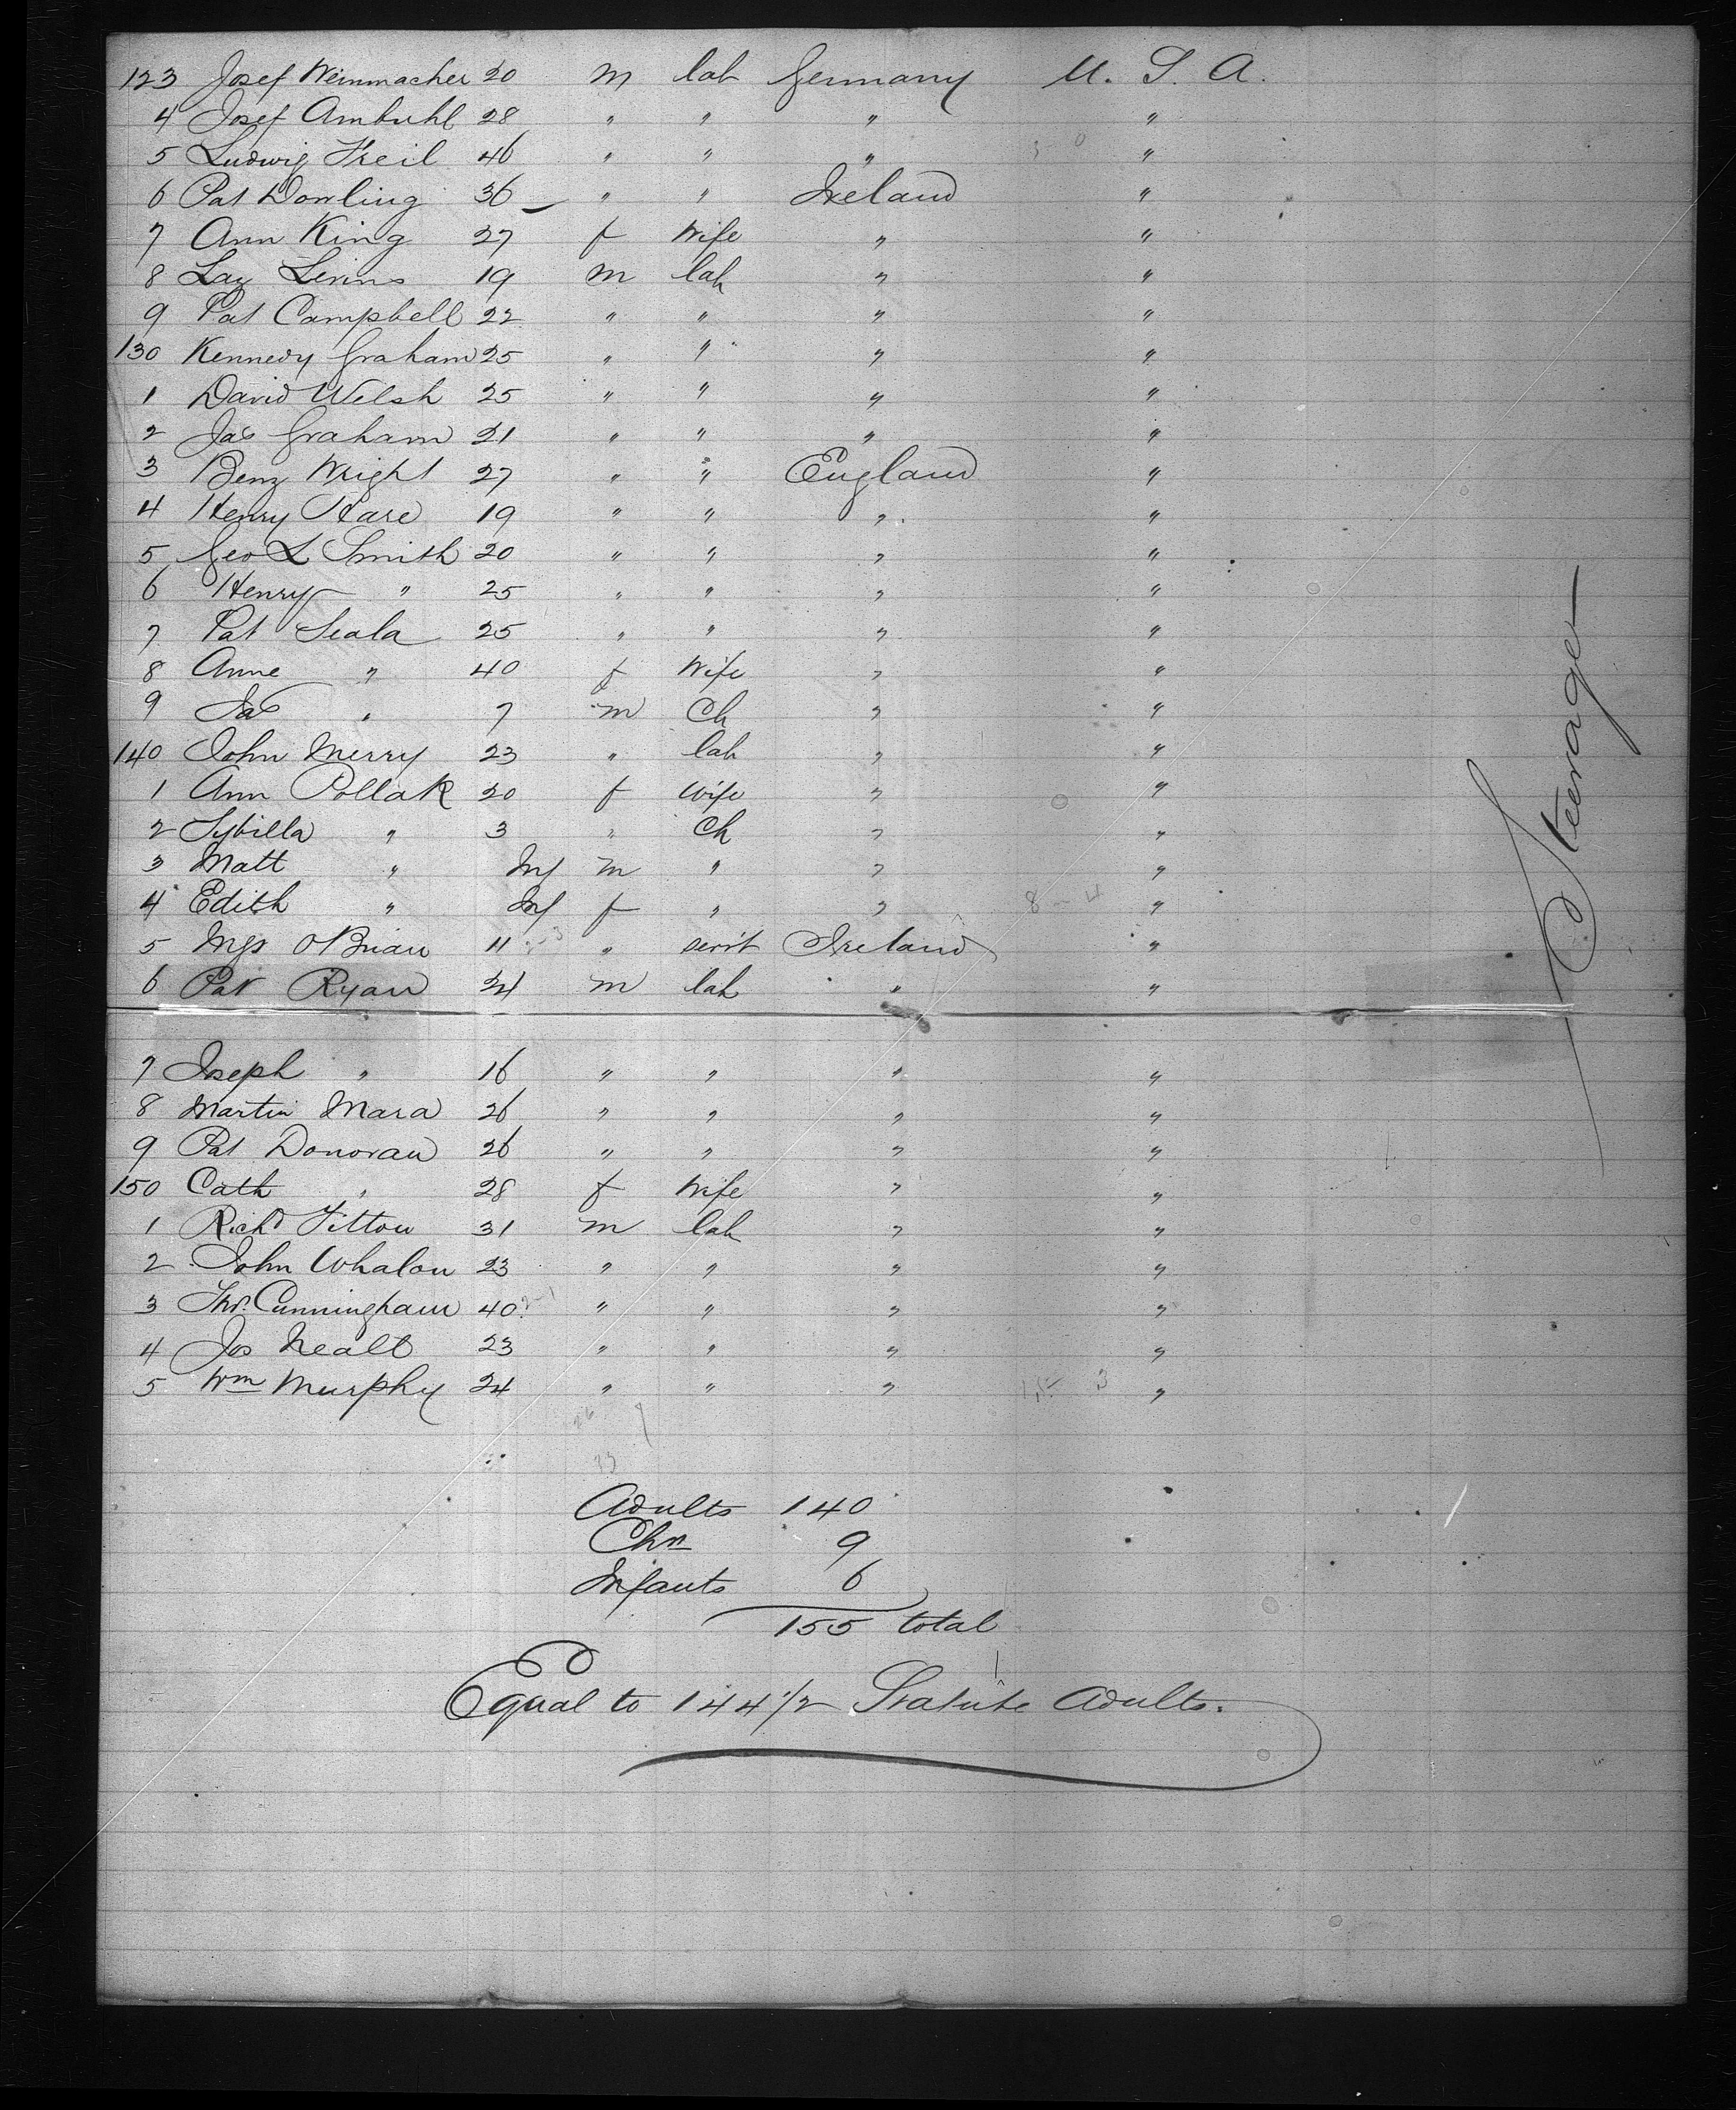 123 Josef Weinmacher 20 m lab Germany U. S. A.
4 Josef Ambuhl 28 " " " "
5 Ludwig Freil 46 " " " "
6 Pat Dowling 36 " " Ireland "
7 Ann King 27 f Wife " "
8 Lay Levins 19 m lab " "
9 Pat Campbell 22 " " " "
130 Kennedy Graham 25 " " " "
1 David Welsh 25 " " " "
2 Jas Graham 21 " " " "
3 Benj Wright 27 " " England "
4 Henry Hare 19 " " " "
5 Geo L Smith 20 " " " "
6 Henry " 25 " " " "
7 Pat Seala 25 " " " "
8 Anne " 40 f Wife " "
9 Jas " 7 m Ch " "
140 John Merry 23 " lab " "
1 Ann Pollak 20 f Wife " "
2 Sybilla " 3 " Ch " "
3 Matt " Inf m " " "
4 Edith " Inf f " " "
5 Mgs OBrian 11 " servt Ireland "
6 Pat Ryan 24 m lab " "
7 Joseph " 16 " " " "
8 Martin Mara 26 " " " "
9 Pat Donovan 26 " " " "
150 Cath " 28 f Wife " "
1 Richd Fitton 31 m lab " "
2 John Whalon 23 " " " "
3 Thos. Cunningham 40 " " " "
4 Jos Neall 23 " " " "
5 Wm Murphy 24 " " " "
Steerage
Adults 140
Chn 9
Infants 6
155 total
Equal to 144 1/2 Statute Adults.